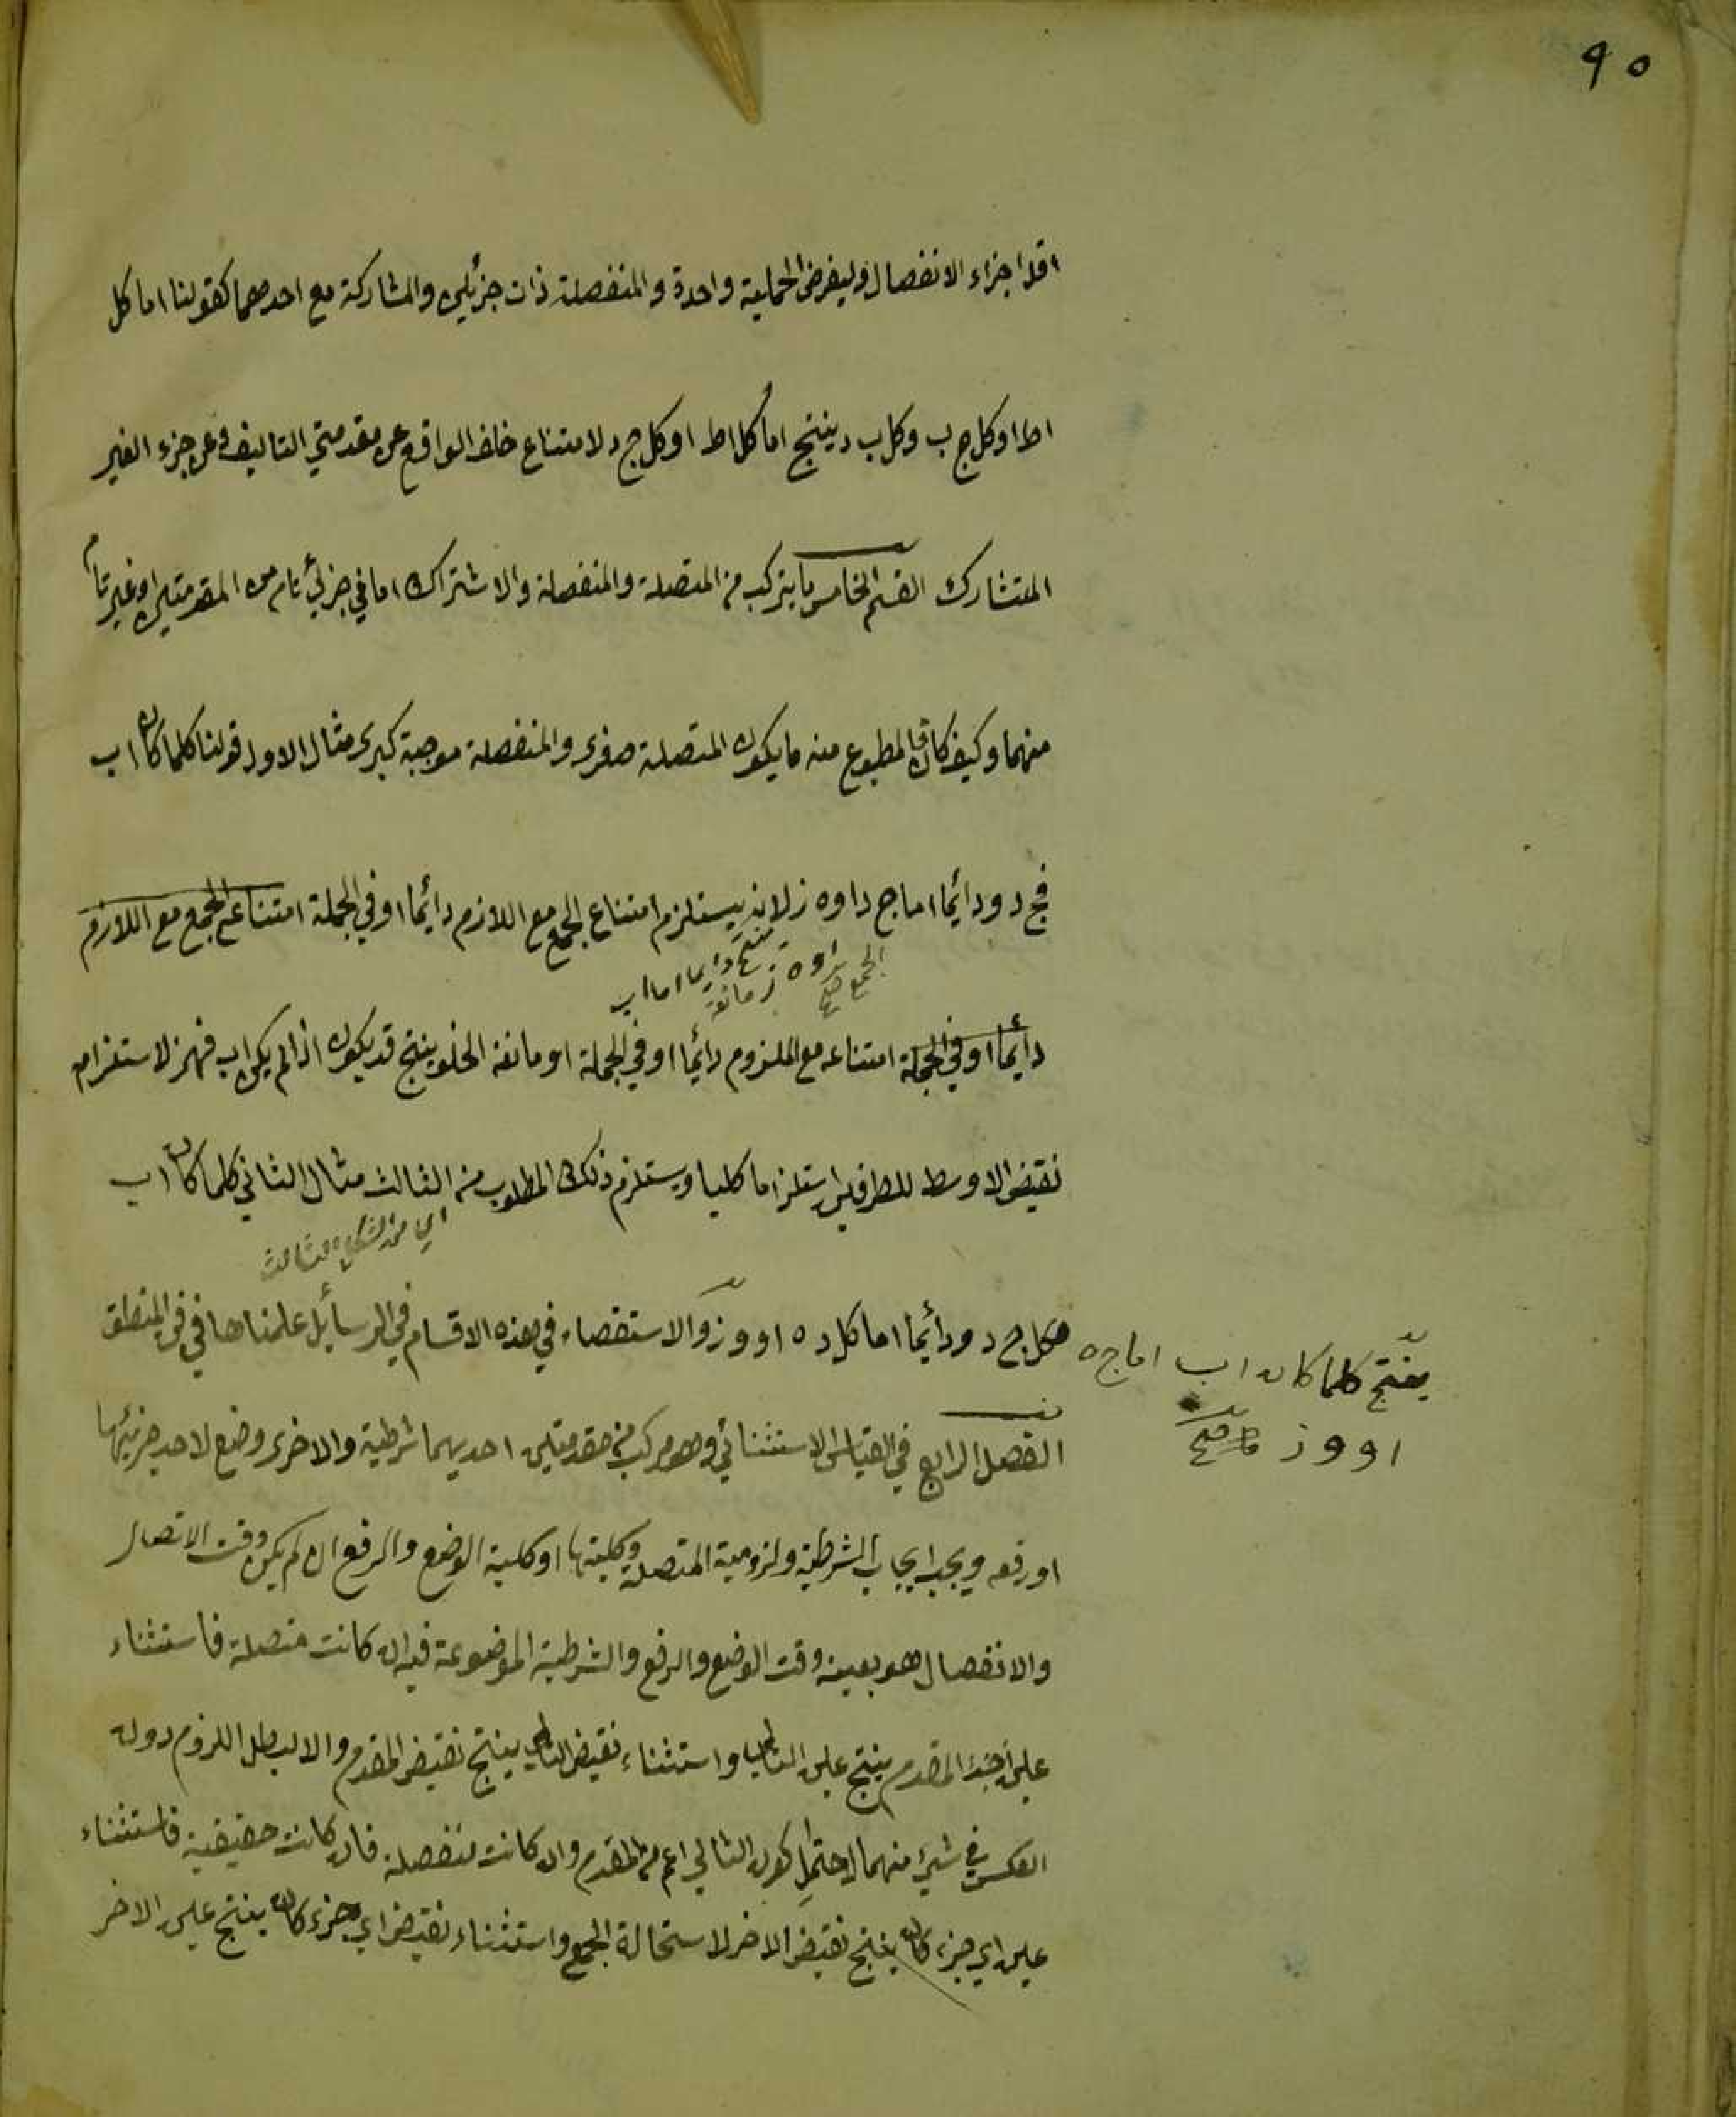 ٩٥
اقل اجزاء الانفصال وليفرض الحملية واحدة والمنفصلة ذات جزئين والمشاركة مع احدهما كقولنا اما كل
اط او كل ج ب وكل ب د ينتج اما كل اط او كل ج د لامتناع خلو الواقع عن مقدمتي التاليف وعن جزء الغير
المتشارك القسم الخامس ما يتركب من المتصلة والمنفصلة والاشتراك اما في جزئ تام من المقدمتين او غير تام
منهما وكيف كان فالمطبوع منه ما يكون المتصلة صغرى والمنفصلة موجبة كبرى مثال الاول قولنا كلما كان ا ب
فج د ودائما اما ج د او ه ز لانه يستلزم امتناع الجمع مع اللازم دائما او في الجملة امتناع الجمع مع اللازم
ينتج دايما اما اب
او ه ز مانعة
الجمع صح
دائما او في الجملة امتناعه مع الملزوم دائما او في الجملة او مانعة الخلو ينتج قد يكون اذا لم يكن اب فهز لاستلزام
نقيض الاوسط للطرفين استلزاما كليا ويستلزم ذلك المطلوب من الثالث مثال الثاني كلما كان ا ب
اي من الشكل الثالث
فكل ج د ودائما اما كل د ه او و ز والاستقصاء في هذه الاقسام في الرسايل علمناها في فن المنطق
ينتج كلما كان اب اما ج ه
او و ز صح
الفصل الرابع في القياس الاستثنائي وهو مركب من مقدمتين احديهما شرطية والاخرى وضع لاحد جزئيها
او رفعه ويجب ايجاب الشرطية ولزومية المتصلة وكليتها او كلية الوضع والرفع ان لم يكن وقت الاتصال
والانفصال هو بعينه وقت الوضع والرفع والشرطية الموضوعة فيه ان كانت متصلة فاستثناء
عين المقدم ينتج عين التالي واستثناء نقيض التالي ينتج نقيض المقدم والا لبطل اللزوم دون
العكس في شيئ منهما لاحتمال كون التالي اعم من المقدم وان كانت منفصلة فان كانت حقيقية فاستثناء
عين اي جزء كان ينتج نقيض الاخر لاستحالة الجمع واستثناء نقيض اي جزء كان ينتج عين الاخر